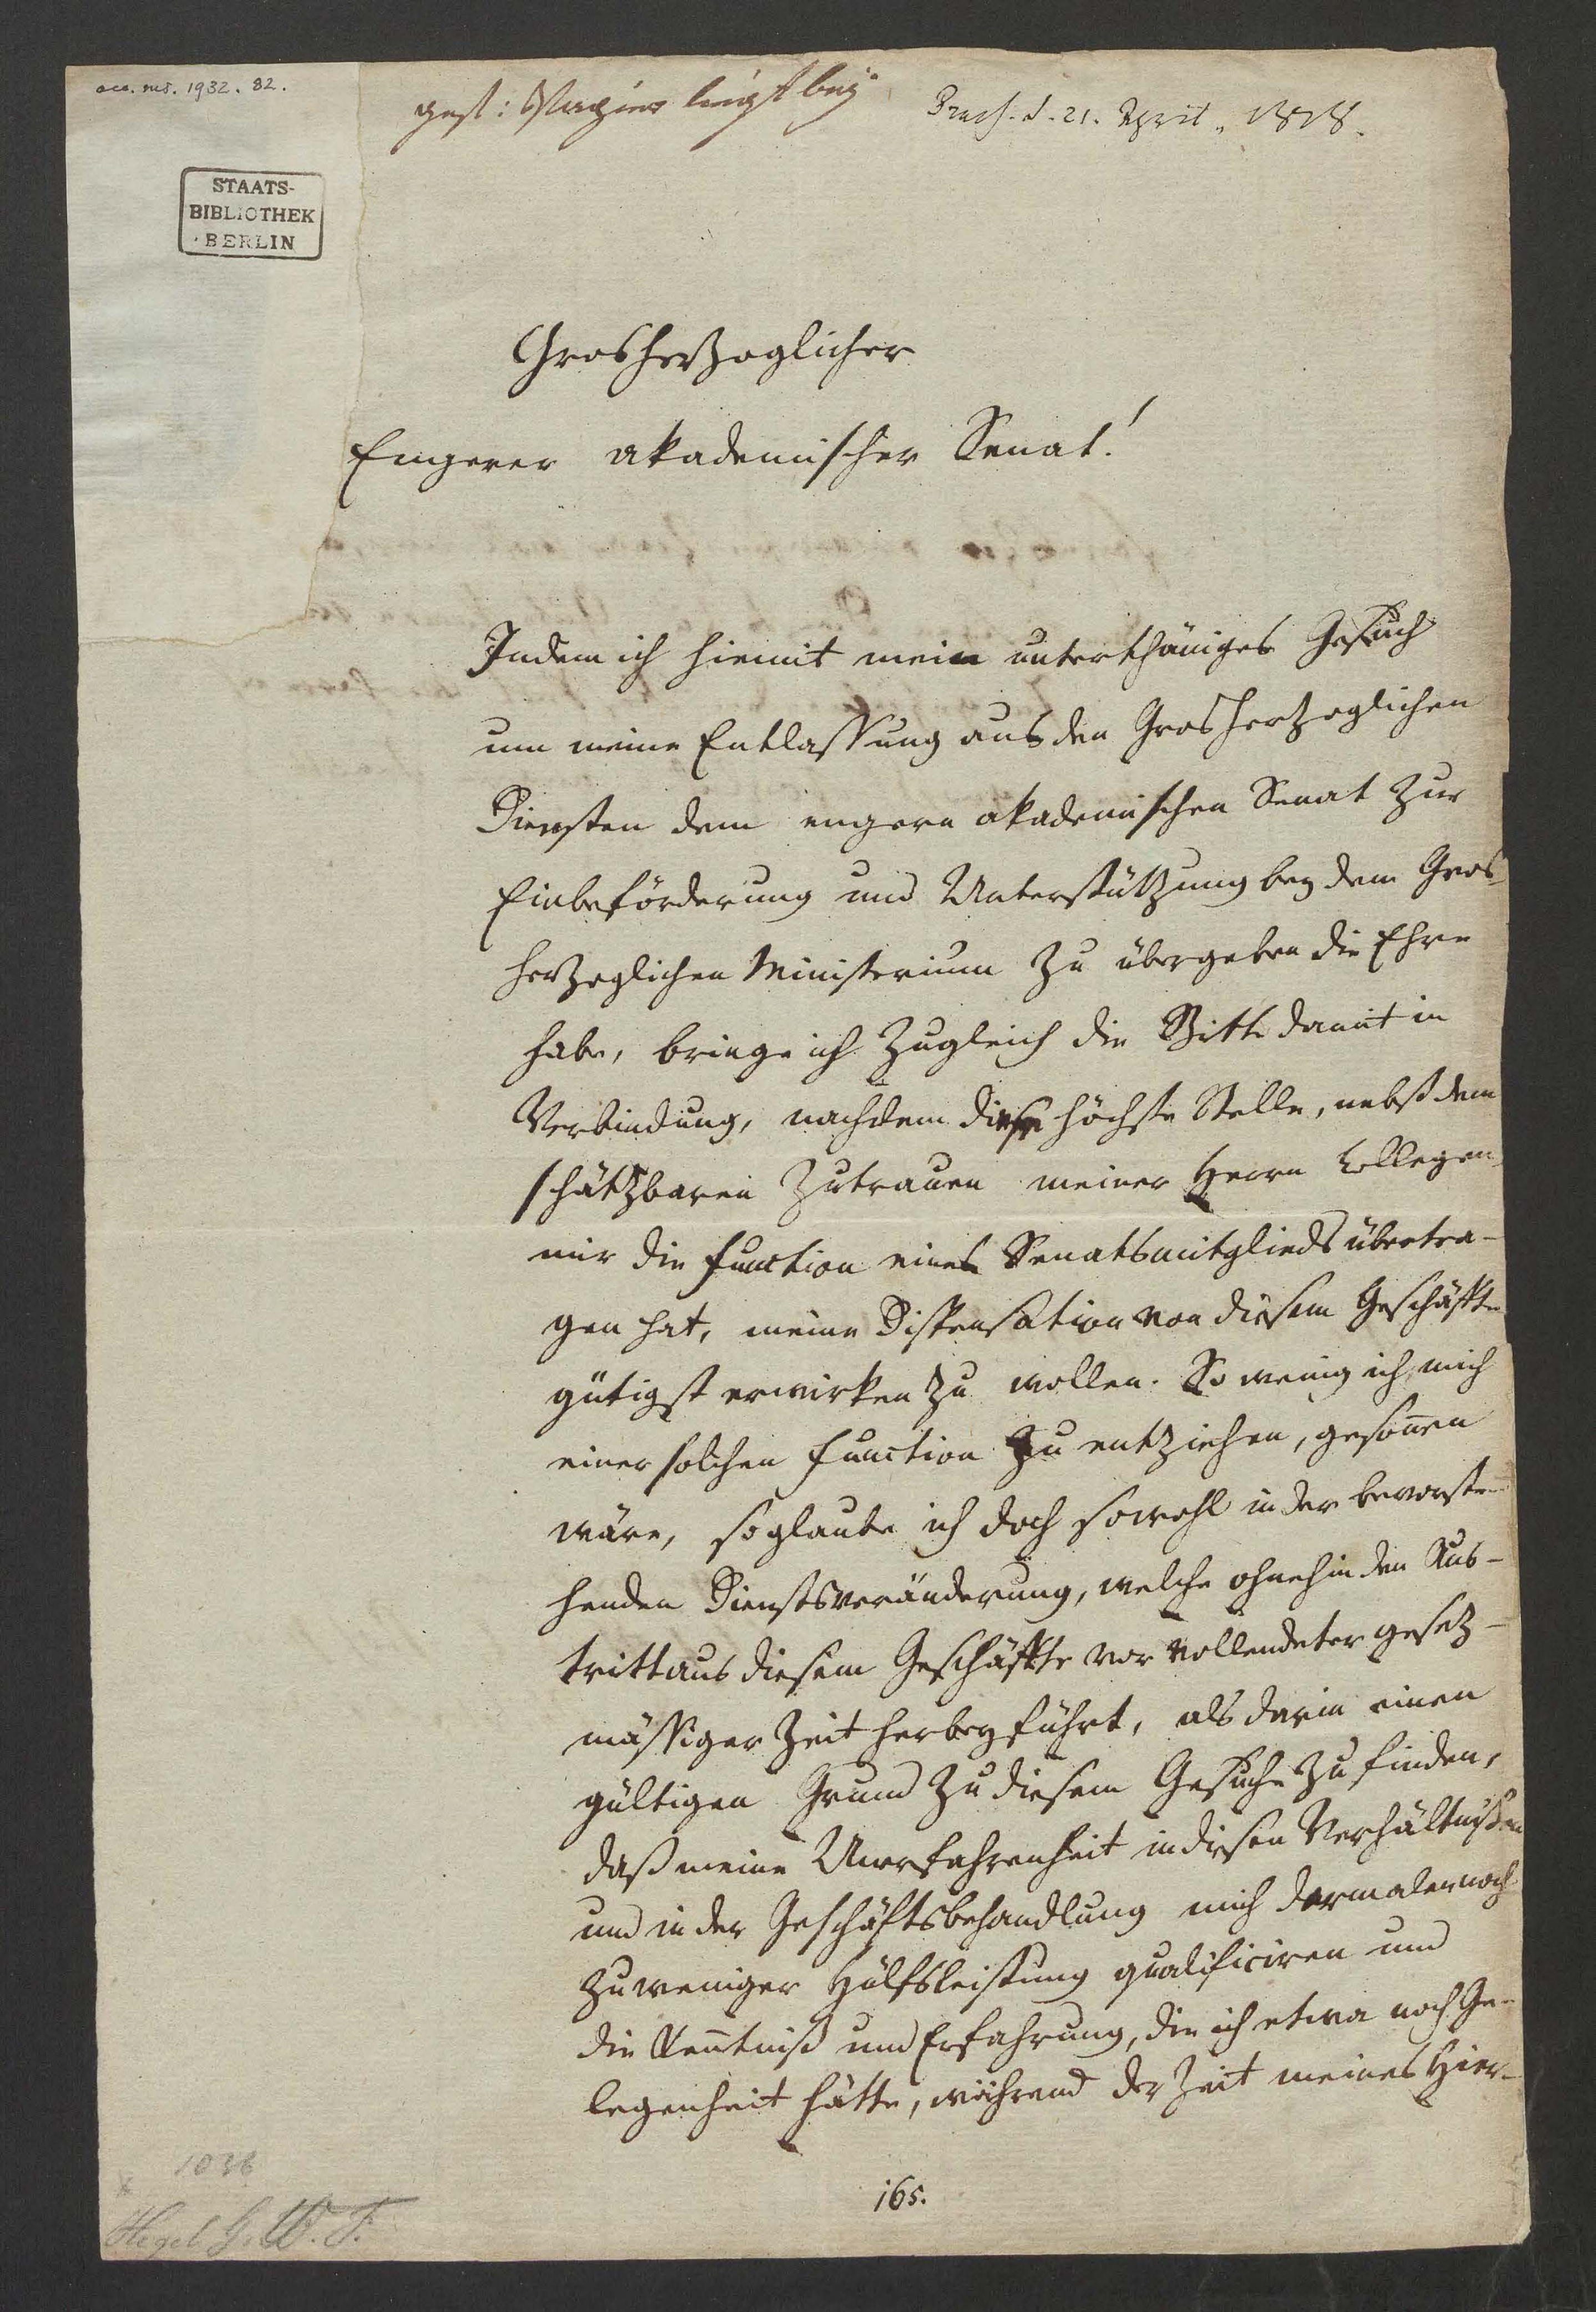 acc. ms. 1932. 82.
Praes. d. 21. April. 1818.
STAATS-
BIBLIOTHEK
BERLIN
Grosherzoglicher
Engerer akademischer Senat!
Indem ich hiemit mein unterthäniges Gesuch
um meine Entlassung aus den Grosherzoglichen
Diensten dem engern akademischen Senat zur
Einbeförderung und Unterstützung bey dem Gros-
herzoglichen Ministerium zu übergeben die Ehre
habe, bringe ich zugleich die Bitte damit in
Verbindung, nachdem diese höchste Stelle, nebst dem
schätzbaren Zutrauen meiner Herrn Collegen,
mir die Function eines Senatsmitglieds übertra-
gen hat, meine Dispensation von diesem Geschäffte
gütigst erwirken zu wollen. So wenig ich mich
einer solchen Function zu entziehen, gesoñen
wäre, so glaube ich doch sowohl in der bevorste-
henden Dienstsveränderung, welche ohnehin den Aus-
tritt aus diesem Geschäffte vor vollendeter gesetz-
mässiger Zeit herbeyführt, als darin einen
gültigen Grund zu diesem Gesuche zu finden,
daß meine Unerfahrenheit in diesen Verhältnißen
und in der Geschäftsbehandlung mich dermalen noch
zu weniger Hülfsleistung qualificiren und
die Keñtniß und Erfahrung, die ich etwa noch Ge-
legenheit hätte, während der Zeit meines Hier-
165.
1036
Hegel G. W. F.